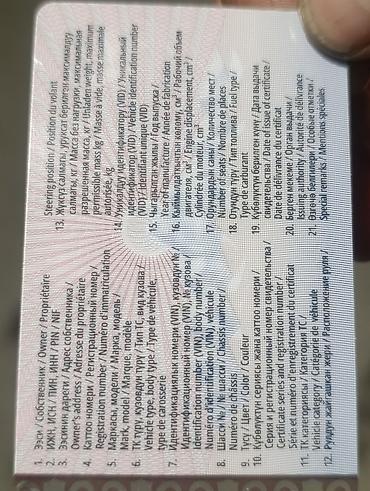 1. Ээси / Собственник / Owner / Propriétaire
2. ИЖН, ИСН / ПИН, ИНН / PIN / NIF
3. Ээсинин дареги / Адрес собственника /
Owner's address / Adresse du propriétaire
4. Каттоо номери / Регистрационный номер /
Registration number / Numéro d'immatriculation
5. Маркасы, модели / Марка, модель /
Mark, model / Marque, modèle
6. ТК түрү, кузовдун түрү / Тип ТС, вид кузова /
Vehicle type, body type / Type de véhicule,
type de carrosserie
7. Идентификациялык номери (VIN), кузовдун № /
Идентификационный номер (VIN), № кузова /
Identification number (VIN), body number /
Numéro d'identification (VIN), numéro
8. Шасси № / № шасси / Chassis number /
Numéro de châssis
9. Түсү / Цвет / Color / Couleur
10. Күбөлүктүн сериясы жана каттоо номери /
Серия и регистрационный номер свидетельства /
Certificate series and registration number /
Série et numéro d'enregistrement du certificat
11. ТК категориясы / Категория ТС /
Vehicle category / Catégorie de véhicule
12. Рулдун жайгашкан жери / Расположение руля /
Steering position / Position du volant
13. Жүксүз салмагы, уруксат берилген максималдуу
салмагы, кг / Масса без нагрузки, максимальная
разрешенная масса, кг / Unladen weight, maximum
permissible mass, kg / Masse à vide, masse maximale
autorisée, kg
14. Уникалдуу идентификатору (VID) / Уникальный
идентификатор (VID) / Vehicle identification number
(VID) / Identifiant unique (VID)
15. Чыгарылган жылы / Год выпуска /
Year of manufacture / Année de fabrication
16. Кыймылдаткычтын көлөмү, см³ / Рабочий объем
двигателя, см³ / Engine displacement, cm³ /
Cylindrée du moteur, cm³
17. Орундардын саны / Количество мест /
Number of seats / Nombre de places
18. Отундун түрү / Тип топлива / Fuel type /
Type de carburant
19. Күбөлүктүн берилген күнү / Дата выдачи
свидетельства / Date of issue of certificate /
Date de délivrance du certificat
20. Берген мекеме / Орган выдачи /
Issuing authority / Autorité de délivrance
21. Өзгөчө белгилери / Особые отметки /
Special remarks / Mentions spéciales